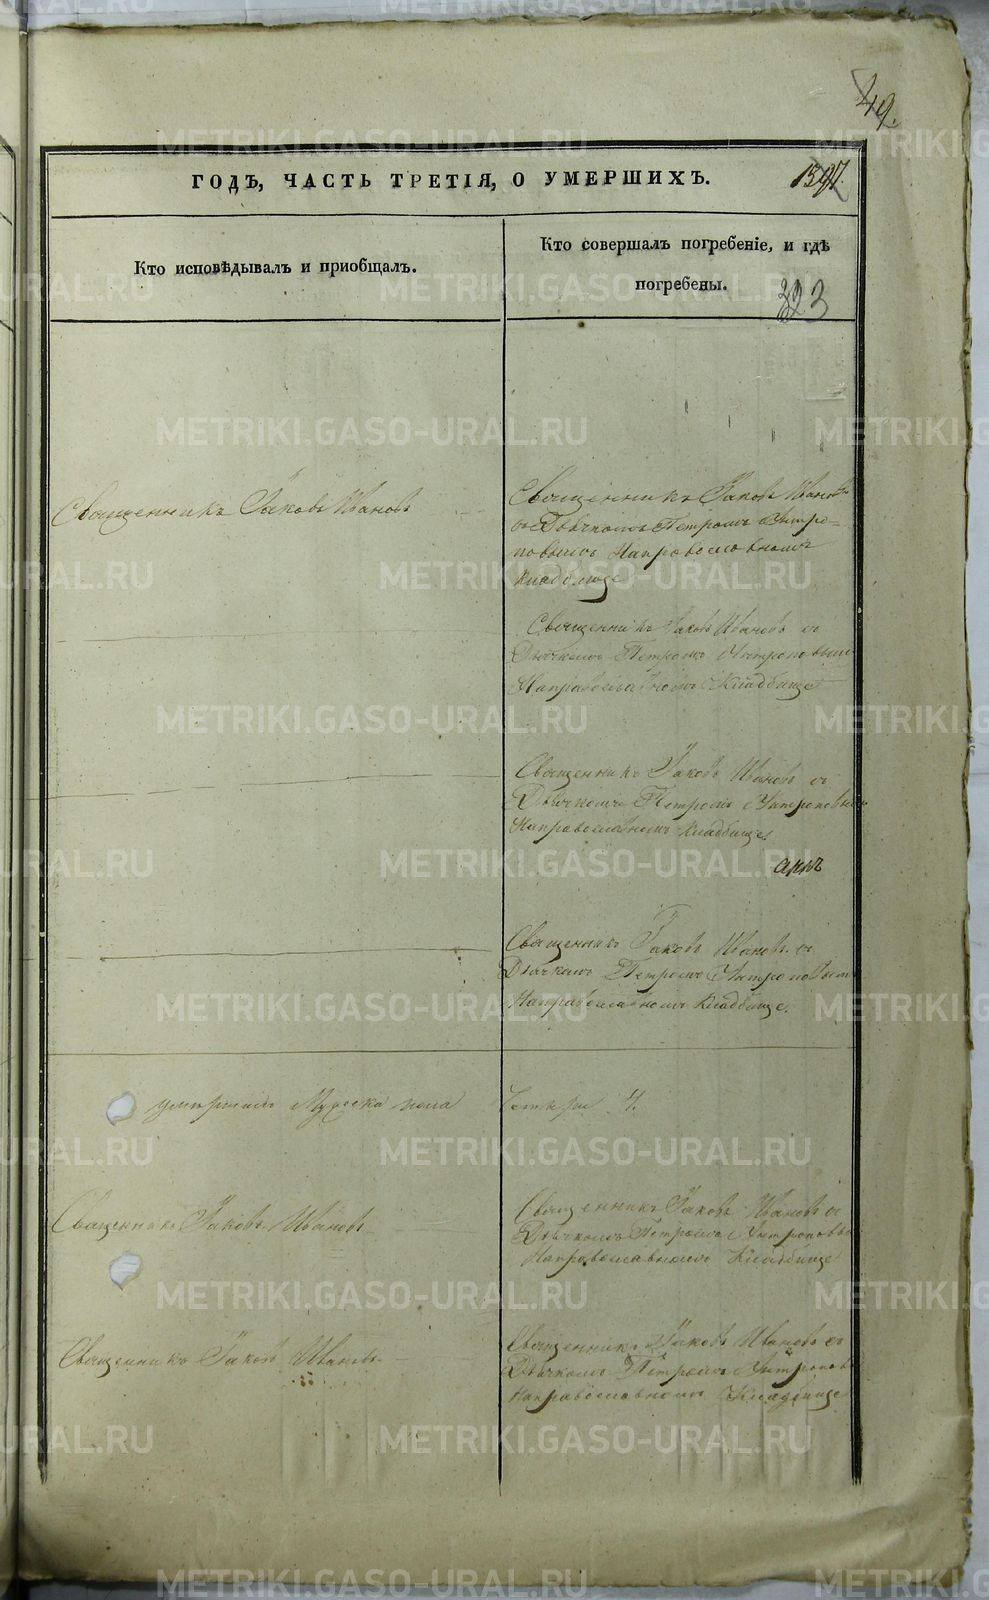 49.
ГОДЪ, ЧАСТЬ ТРЕТІЯ, О УМЕРШИХЪ.
1597.
Кто исповѣдывалъ и приобщалъ.
Кто совершалъ погребеніе, и гдѣ
погребены.
323
Священникъ Іаковъ Ивановъ
Священникъ Іаковъ Ивановъ
съ Дьячкомъ Петромъ Антро-
повымъ На православномъ
кладбище
Священникъ Іаковъ Ивановъ съ
Дьячкомъ Петромъ Антроповым
На православномъ Кладбище
Священникъ Іаковъ Ивановъ съ
Дьячкомъ Петромъ Антроповым
На православномъ кладбище.
Священникъ Іаковъ Ивановъ съ
Дьячкомъ Петромъ Антроповым
На православномъ кладбище.
умершихъ Мужеска пола
Четыри 4.
Священникъ Іаковъ Ивановъ
Священникъ Іаковъ Ивановъ съ
Дьячкомъ Петромъ Антроповы
На православномъ Кладбище
Священникъ Іаковъ Ивановъ
Священникъ Іаковъ Ивановъ съ
Дьячкомъ Петромъ Антропов
На православномъ Кладбище
METRIKI.GASO-URAL.RU